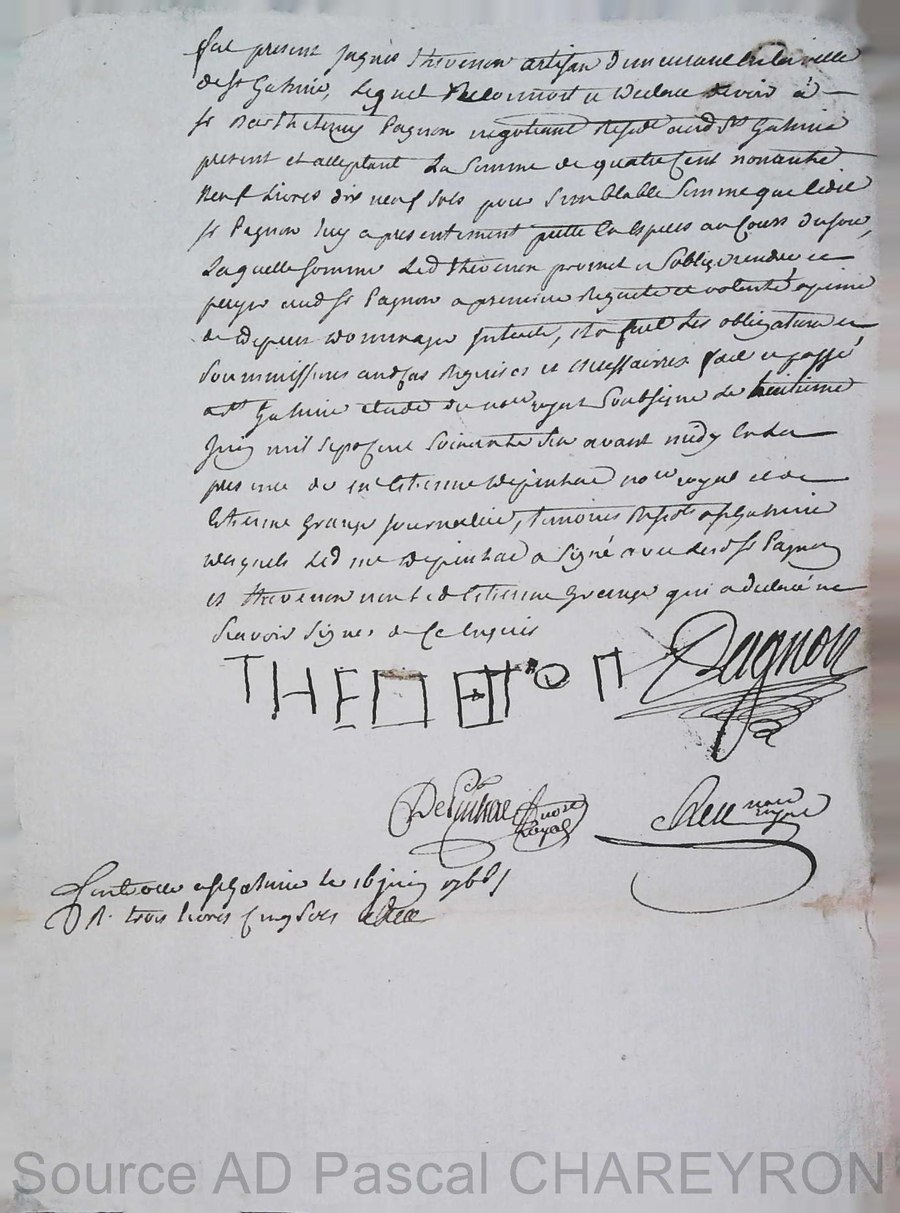 fut present Jaques Thevenon artisan demeurant en la ville
de St Galmier, Lequel Reconnoit et declare devoir à
sr Barthelemy Pagnon negotiant Reside aud St Galmier
present et acceptant La somme de quatre cent nonante
neuf Livres dix neuf sols pour semblable somme que ledit
sr Pagnon luy a presentement prette en Especes au Cours du jour,
Laquelle somme Led thevenon promet et s'oblige rendre et
payer aud sr Pagnon a premiere Requete et volonté a peine
de depens dommages Interets, et a fait Les obligations et
soummissions aud cas Requises et necessaires fait et passé
a St Galmier etude du nore royal soubsigné le huitieme
Juin mil sept cent soixante six avant midy En la
presence de me Estienne depinhac nore royal et de
Estienne Grange journalier, temoins a St Galmier
Lesquels Led me depinhac a signé avec lesd sr Pagnon
et thevenon non Led Estienne Grange qui a declaré ne
scavoir signer de Ce Enquis
THEVENON Pagnon
DePinhac nore Royal nore royal
Controlle a St Galmier le 16 juin 176
R. trois livres Cinq sols
Source AD Pascal CHAREYRON